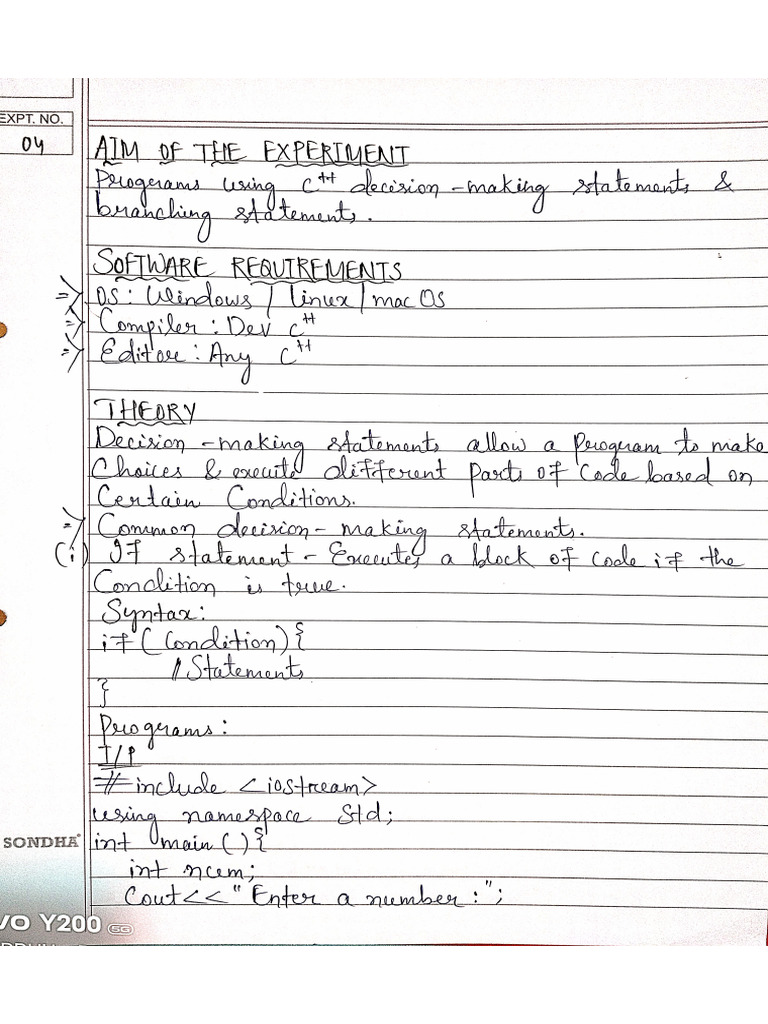 EXPT. NO.
04
AIM OF THE EXPERIMENT
Programs using C++ decision-making statements &
branching statements.
SOFTWARE REQUIREMENTS
=> OS: Windows / linux / mac OS
=> Compiler: Dev C++
=> Editor: Any C++
THEORY
Decision-making statements allow a program to make
Choices & execute different parts of code based on
Certain Conditions.
=> Common decision-making statements.
(i) If statement - Executes a block of code if the
Condition is true.
Syntax:
if (Condition) {
// Statements
}
Programs:
I/P
# include <iostream>
using namespace Std;
int main () {
int num;
Cout << "Enter a number:";
SONDHA
VO Y200 5G